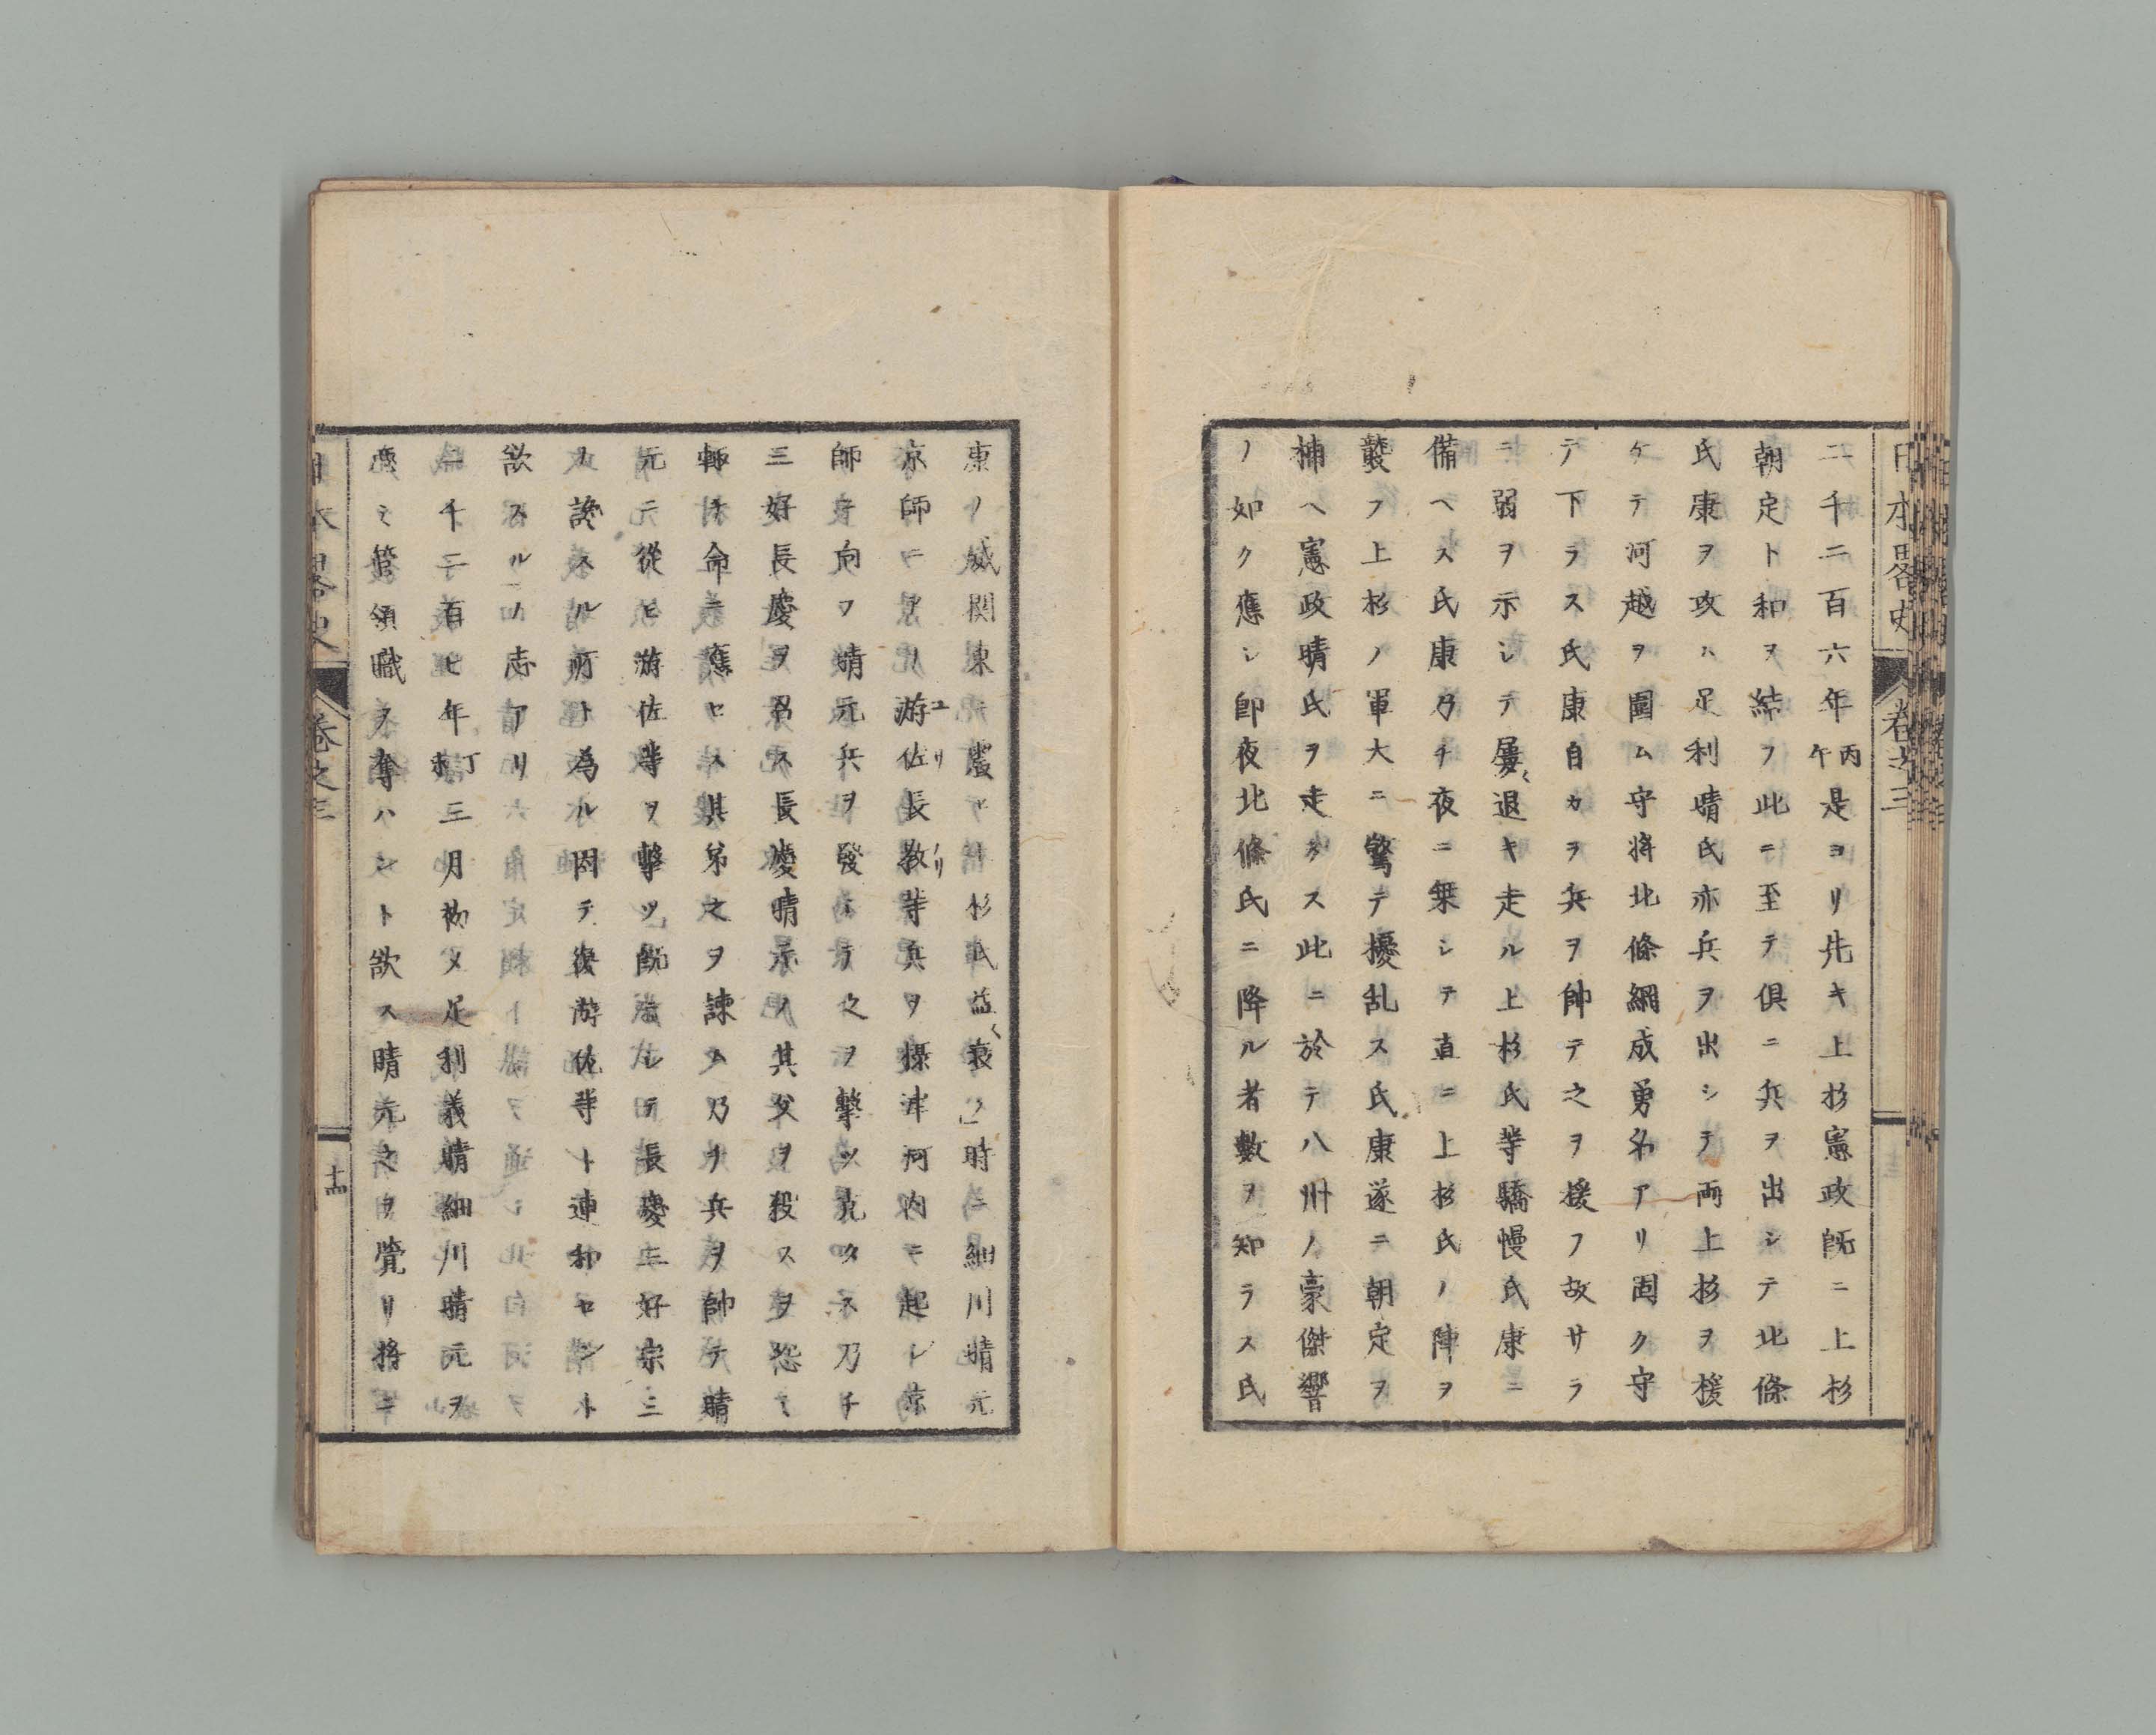 日本畧史 卷之三
二千二百六年丙午是ヨリ先キ上杉憲政既ニ上杉
朝定ト和ヲ結フ此ニ至テ倶ニ兵ヲ出シテ北條
氏康ヲ攻ム足利晴氏亦兵ヲ出シテ両上杉ヲ援
ケテ河越ヲ圍ム守将北條綱成勇名アリ固ク守
テ下ラス氏康自カラ兵ヲ帥テ之ヲ援フ故サラ
ニ弱ヲ示シテ屢〻退キ走ル上杉氏等驕慢氏康ニ
備ヘス氏康乃チ夜ニ乗シテ直ニ上杉氏ノ陣ヲ
襲フ上杉ノ軍大ニ驚テ擾乱ス氏康遂ニ朝定ヲ
捕ヘ憲政晴氏ヲ走ラス此ニ於テ八州ノ豪傑響
ノ如ク應シ即夜北條氏ニ降ル者數ヲ知ラス氏
康ノ威関東ニ震ヒ上杉氏益〻衰フ」時ニ細川晴元
京師ニアリ游佐長教等兵ヲ攝津河内ニ起シ京
師ニ向フ晴元兵ヲ發シテ之ヲ撃ツ克タス乃チ
三好長慶ヲ召ス長慶晴元ノ其父ヲ殺スヲ怨ミ
輙チ命ニ應セス其弟之ヲ諫ム乃チ兵ヲ帥テ晴
元ニ從ヒ游佐等ヲ撃ツ既ニシテ長慶三好宗三
ノ讒スル所ト為ル因テ復游佐等ト連和セント
欲スルノ志アリ
二千二百七年丁未三月初メ足利義晴細川晴元ヲ
シテ管領職ヲ奪ハシト欲ス晴元之ヲ覺リ将ニ
日本畧史 卷之三 十四